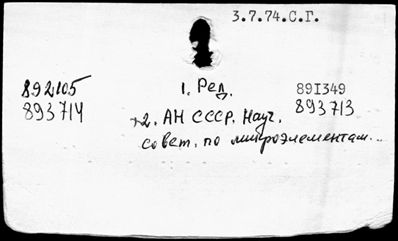 3.7.74.С.Г.
892105 1. Ред. 891349
893714 893713
+2. АН СССР. Науч.
совет. по микроэлементам...